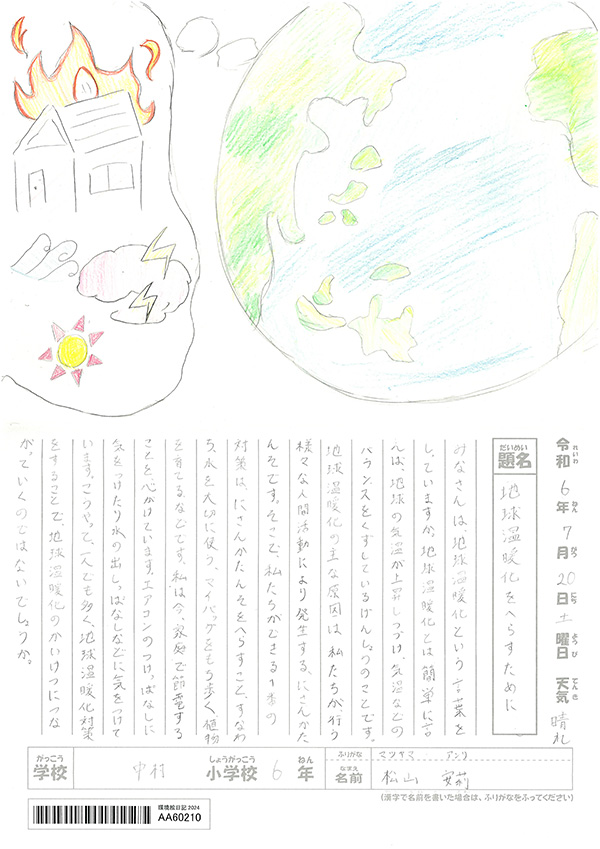 令和6年7月20日土曜日 天気 晴れ
れいわ ねん がつ にち ようび てんき
題名 地球温暖化をへらすために
だいめい
みなさんは、地球温暖化という言葉を
しっていますか。地球温暖化とは簡単に言
えば、地球の気温が上昇しつづけ、気温などの
バランスをくずしているげんしょうのことです。
地球温暖化の主な原因は、私たちが行う
様々な人間活動により発生する、にさんかた
んそです。そこで、私たちができる1番の
対策は、にさんかたんそをへらすこと、すなわ
ち、水を大切に使う、マイバッグをもち歩く、植物
を育てる、などです。私は今、家庭で節電する
ことを心がけています。エアコンのつけっぱなしに
気をつけたり水の出しっぱなしなどに気をつけて
います。こうやって、一人でも多く、地球温暖化対策
をすることで、地球温暖化のかいけつにつな
がっていくのではないでしょうか。
がっこう しょうがっこう ねん ふりがな マツヤマ アンリ
学校 中村 小学校 6年 名前 松山 安莉
なまえ
(漢字で名前を書いた場合は、ふりがなをふってください)
環境絵日記 2024
AA60210